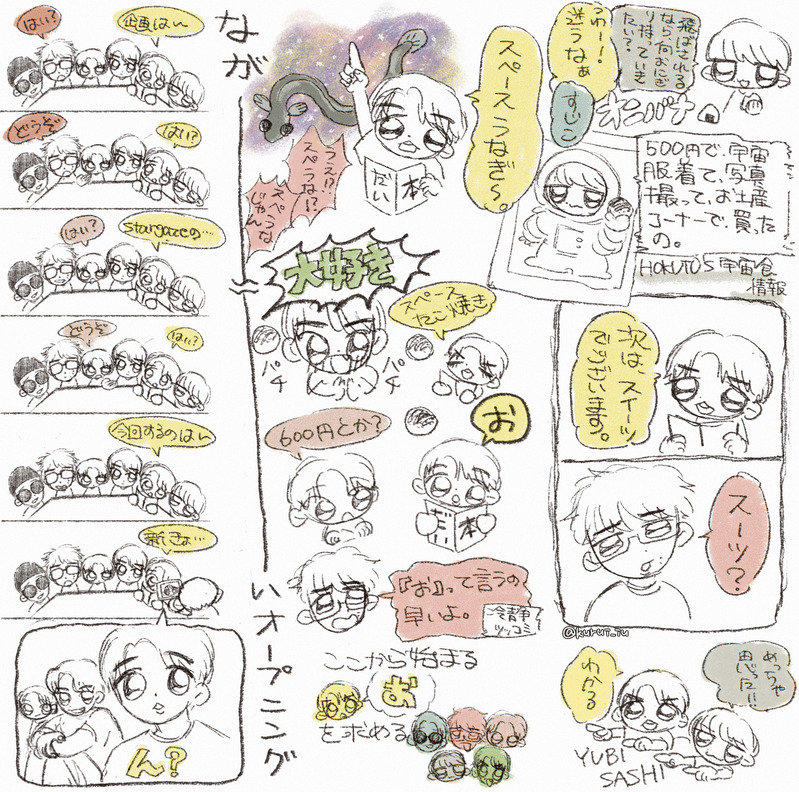 はい?
企画は〜
どうぞ
はい?
はい?
stargazeの…
どうぞ
はい?
今回するのは〜
新しきょ…
ん?
なが
〜いオープニング
スペースうなぎ〜。
うス!?
スペうな!?
スペうなじゃん
だい
本
大好き
スペース
たこ焼き
パチ
パチ
600円とか?
お
だい
本
『お』って言うの
早いよ。
冷静
ツッコミ
ここから始まる
お
を求める
うわー!
迷うなぁ
飛ばされる
なら何おにぎ
り持っていき
たい?
すいこ
オニバナ
500円で、宇宙
服着て、写真
撮って、お土産
コーナーで、買った
の。
HOKUTO'S 宇宙食
情報
次は、スイーツ
でございます。
スーツ?
@kurui_iu
わかる
めっちゃ
思った!!
YUBI
SASHI